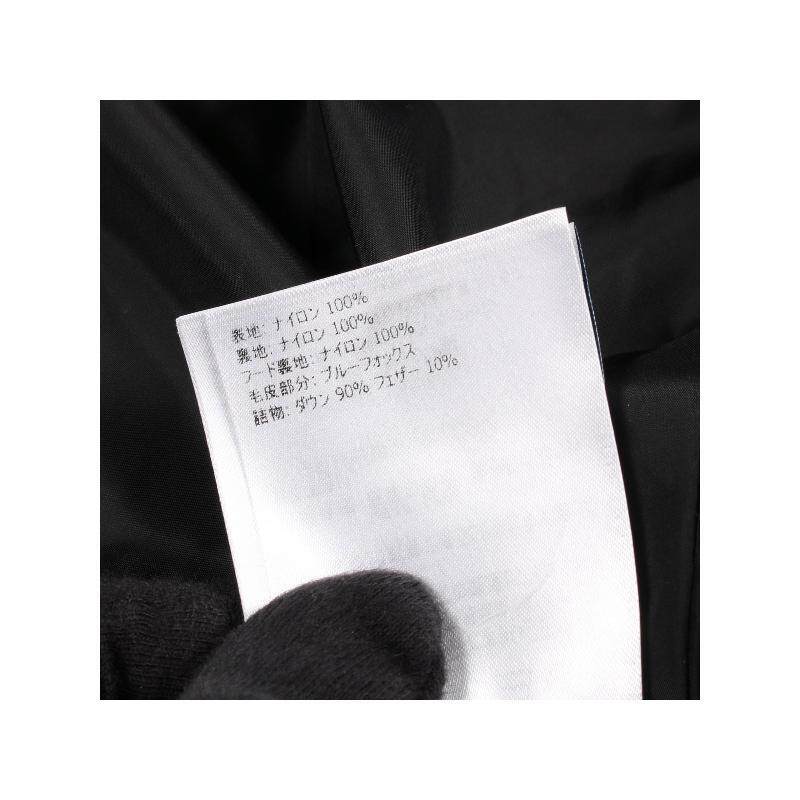 表地: ナイロン 100%
裏地: ナイロン 100%
フード裏地: ナイロン 100%
毛皮部分: ブルーフォックス
詰物: ダウン 90% フェザー 10%